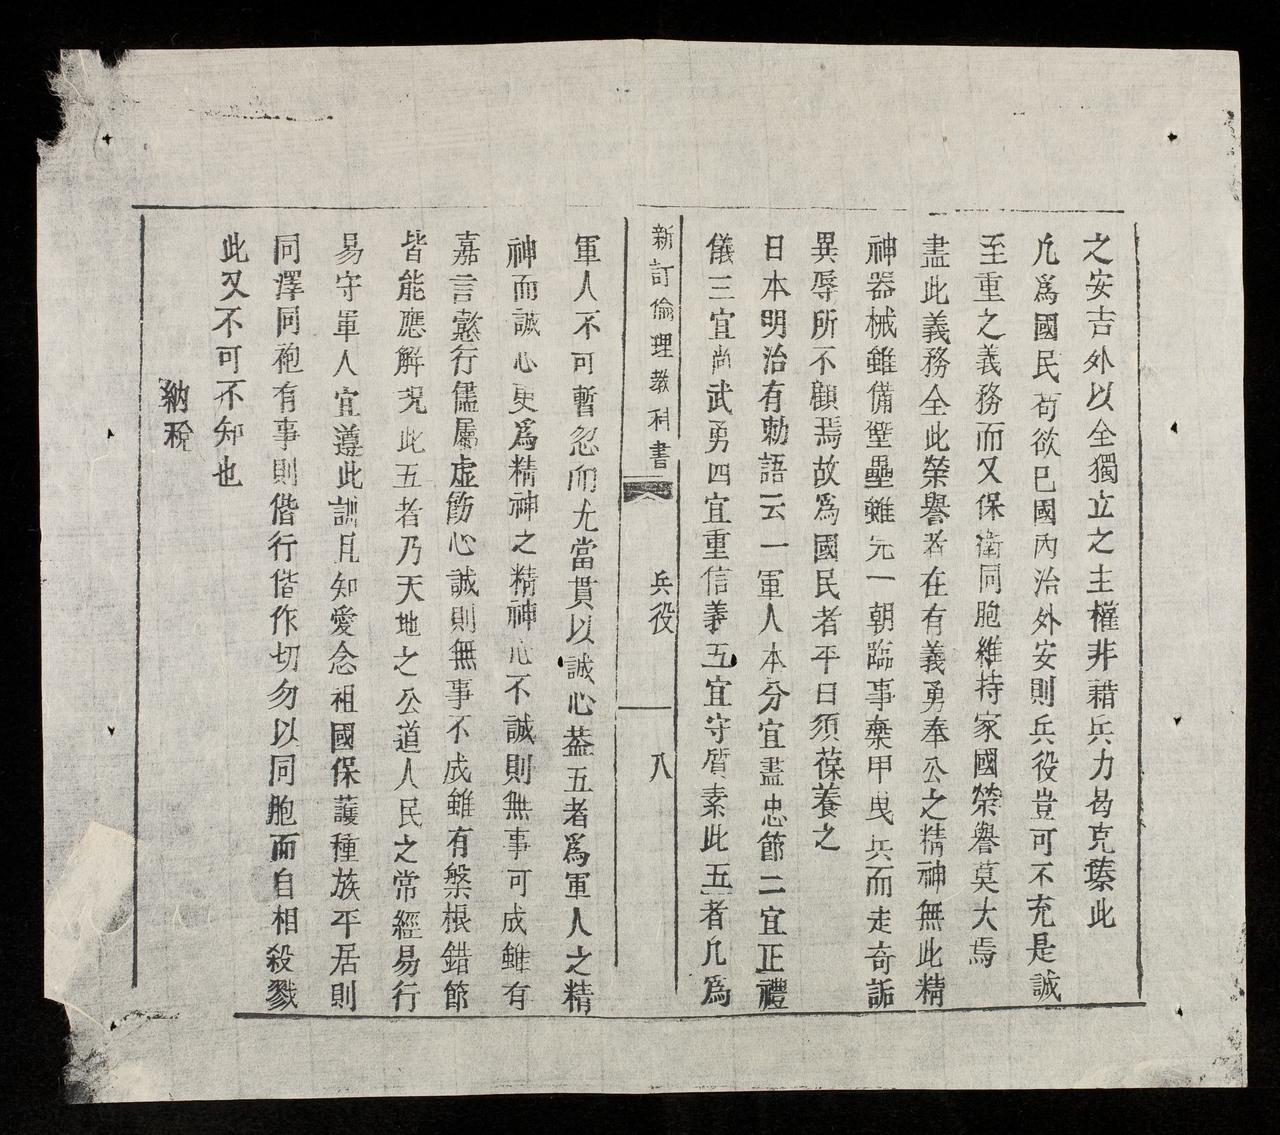 之安吉外以全獨立之主權非藉兵力曷克臻此
凡爲國民苟欲已國內治外安則兵役豈可不充是誠
至重之義務而又保衛同胞維持家國榮譽莫大焉
盡此義務全此榮譽者在有義勇奉公之精神無此精
神器械雖備壁壘雖完一朝臨事棄甲曳兵而走奇詬
異辱所不顧焉故爲國民者平日須葆養之
日本明治有勅語云一軍人本分宜盡忠節二宜正禮
儀三宜尚武勇四宜重信義五宜守質素此五者凡爲
新訂倫理教科書
兵役
八
軍人不可暫忽而尤當貫以誠心蓋五者爲軍人之精
神而誠心更爲精神之精神心不誠則無事可成雖有
嘉言懿行儘屬虛飾心誠則無事不成雖有槃根錯節
皆能應解況此五者乃天地之公道人民之常經易行
易守軍人宜遵此訓且知愛念祖國保護種族平居則
同澤同袍有事則偕行偕作切勿以同胞而自相殺戮
此又不可不知也
納稅